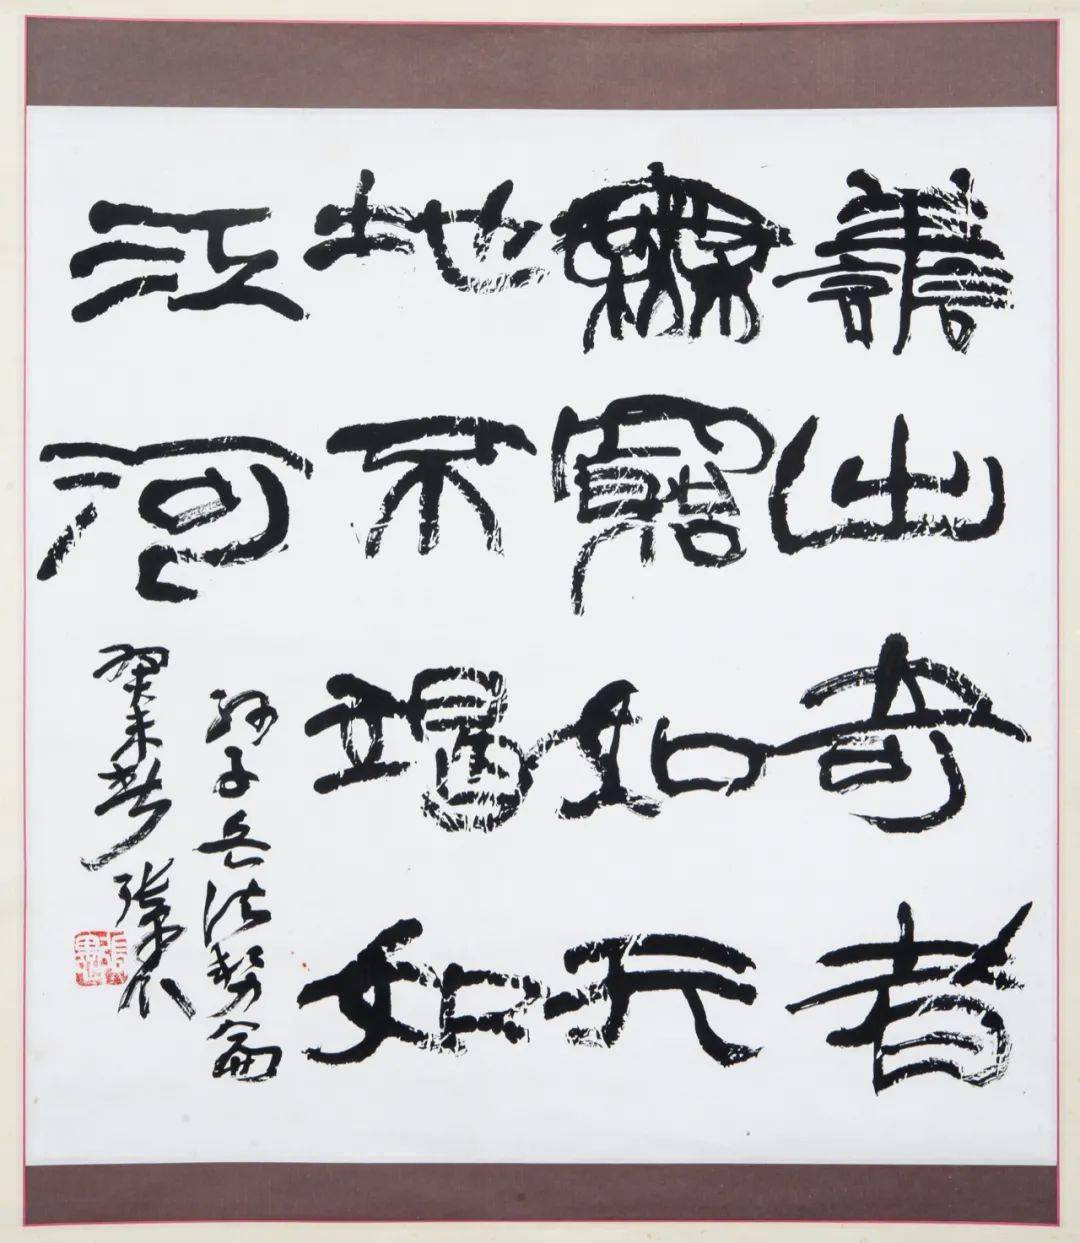 善出奇者
無窮如天
地不竭如
江河
孫子兵法勢篇
癸未春 張